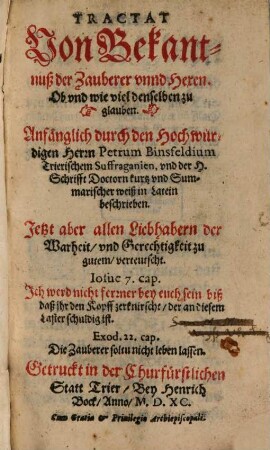 TRACTAT
Von Bekant-
nuß der Zauberer vnnd Hexen.
Ob vnd wie viel denselben zu
glauben.
Anfänglich durch den Hoch wür-
digen Herrn Petrum Binsfeldium
Trierischem Suffraganien, vnd der H.
Schrifft Doctorn kurtz vnd Sum-
marischer weiß in Latein
beschrieben.
Jetzt aber allen Liebhabern der
Warheit/ vnd Gerechtigkeit zu
gutem/ verteutscht.
Iosue 7. cap.
Ich werd nicht ferzner bey euch sein biß
daß ihr den Kopff zerknirscht/ der an diesem
Laster schuldig ist.
Exod. 22. cap.
Die Zauberer soltu nicht leben lassen.
Getruckt in der Churfürstlichen
Statt Trier/ Bey Henrich
Bock/ Anno/ M. D. XC.
Cum Gratia & Priuilegio Archiepiscopali.